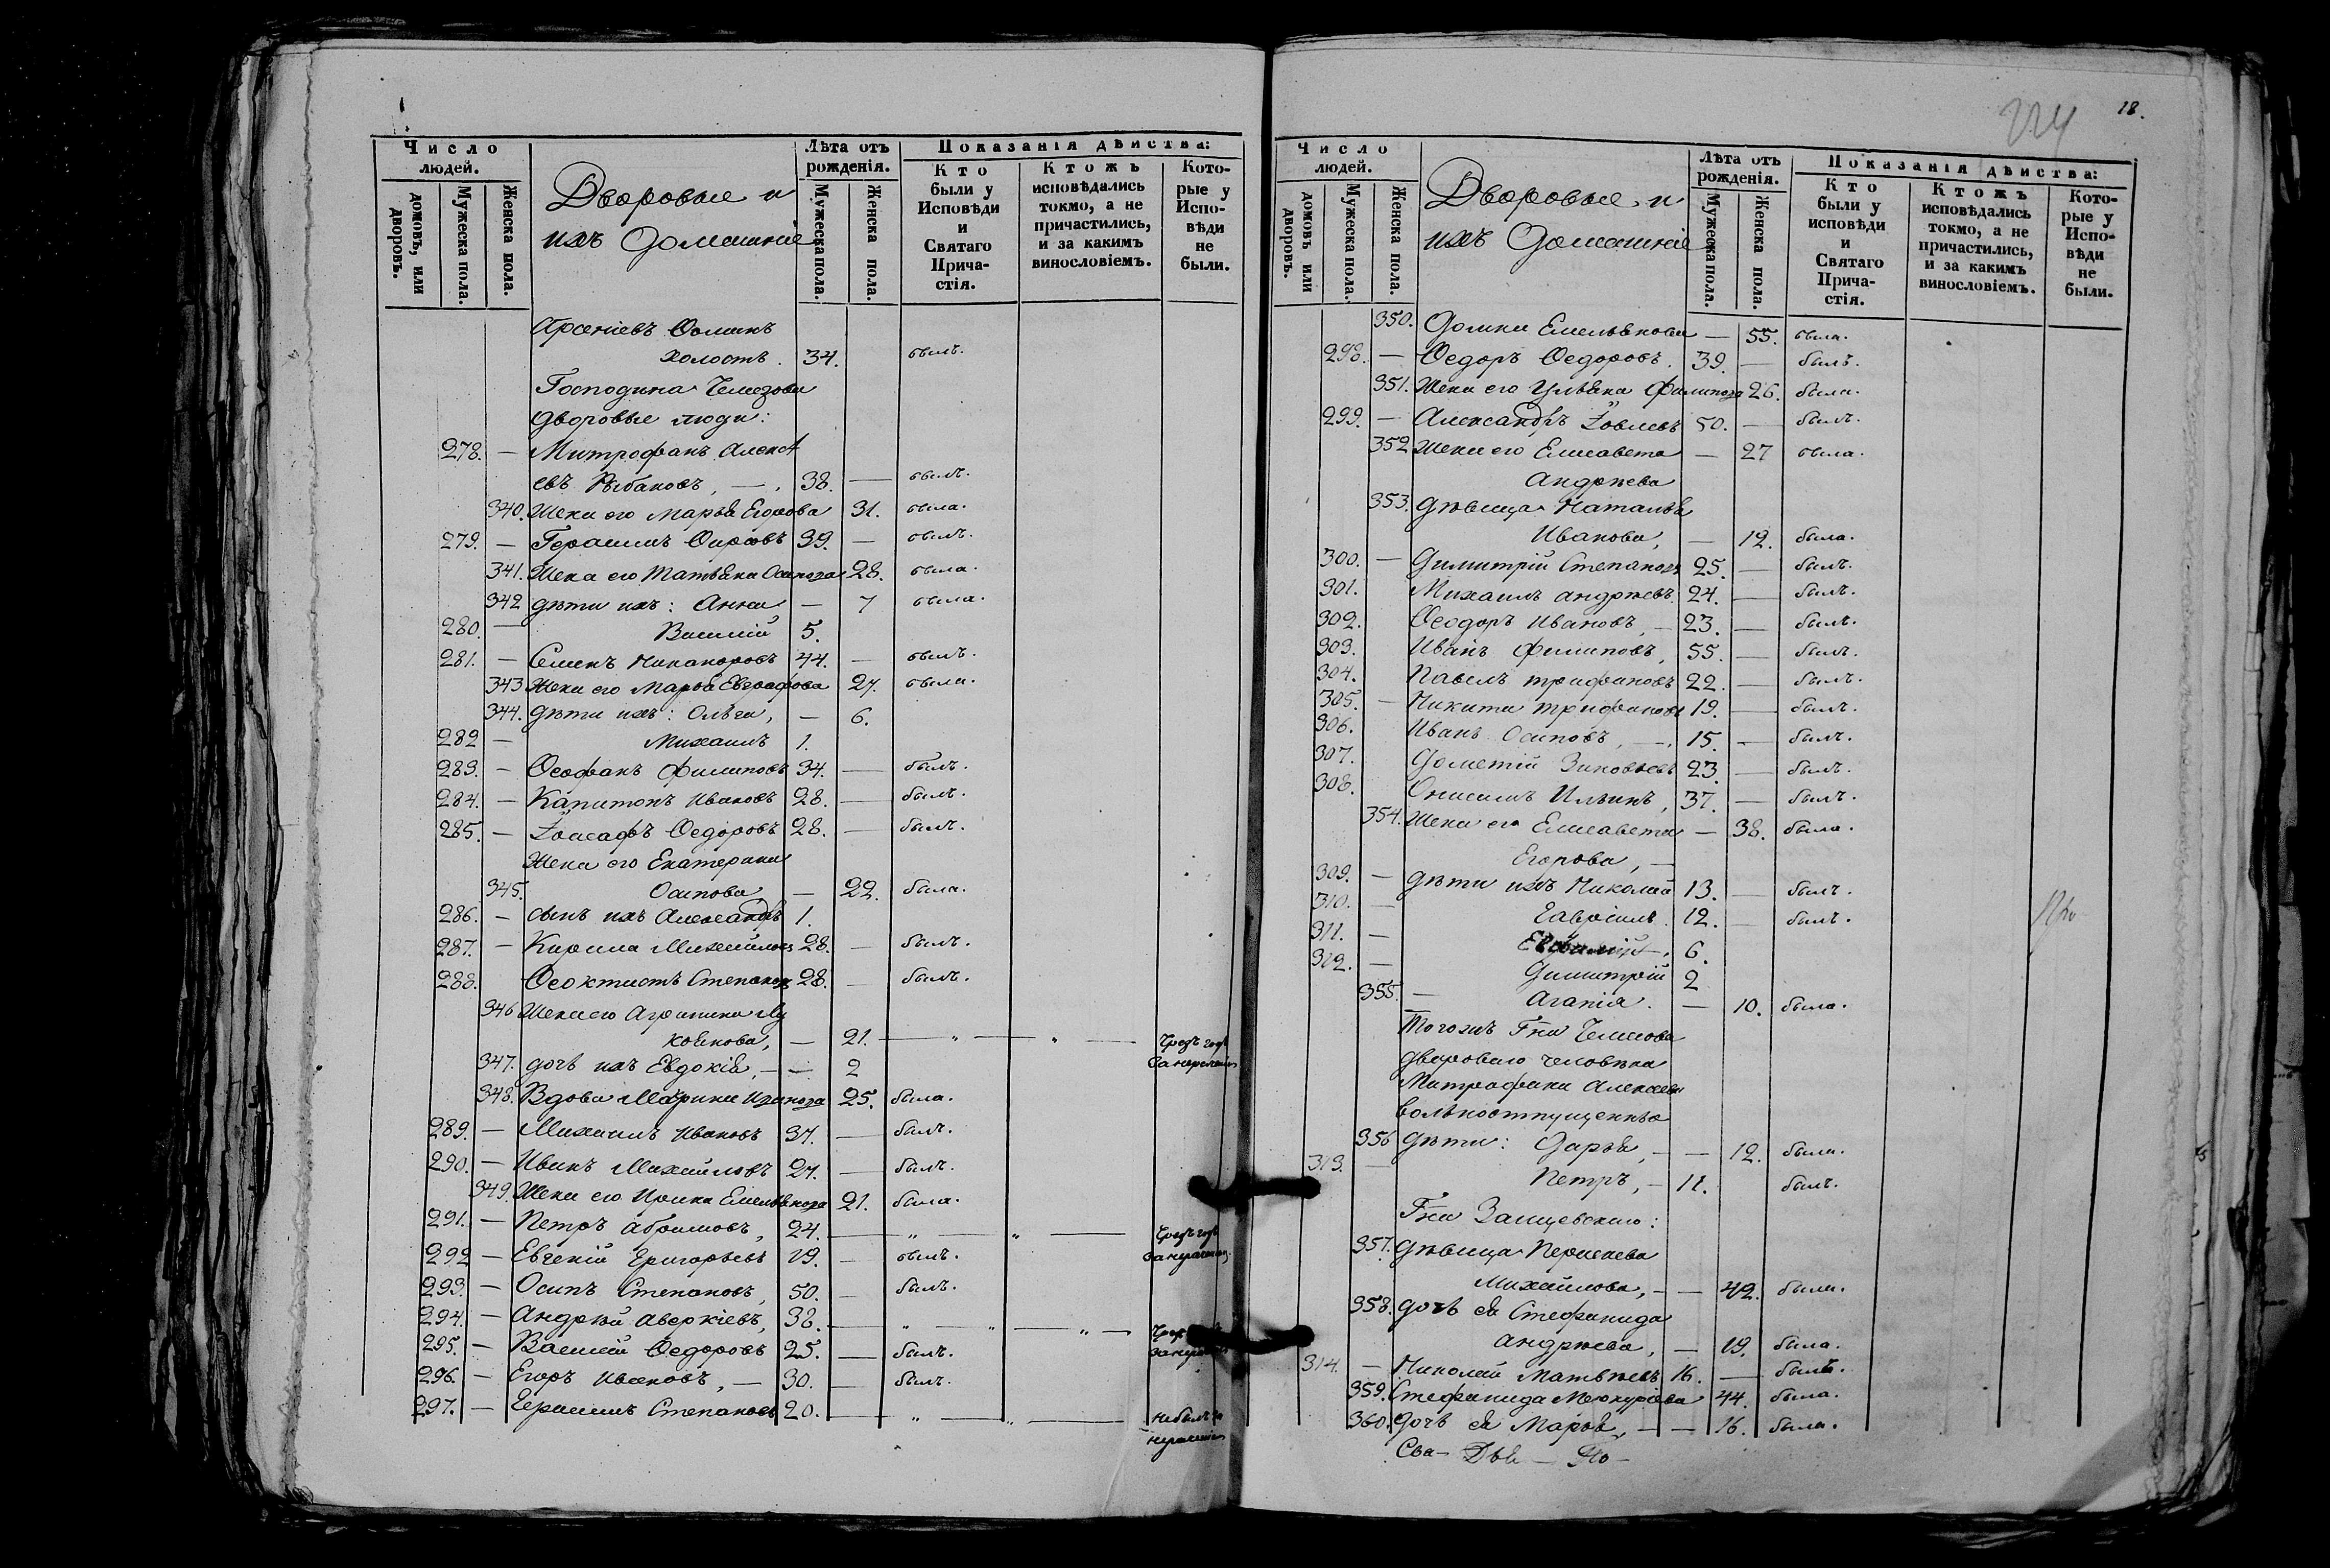 Число людей.
домовъ, или дворовъ.
Мужеска пола.
Женска пола.
Дворовые и
ихъ домашніе
Лѣта отъ рожденія.
Мужеска пола.
Женска пола.
Показанія дѣйства:
Кто были у Исповѣди и Святаго Причастія.
Ктожъ исповѣдались токмо, а не причастились, и за какимъ винословіемъ.
Которые у Исповѣди не были.
Арсеніевъ Ѳоминъ
холостъ. 34. былъ.
Господина
дворовые люди:
278. — Митрофанъ Алексѣ
евъ Рыбаковъ, — 38. — былъ.
340. Жена его Марья Егорова 31. была.
279. — Герасимъ 39. — былъ.
341. Жена его Татьяна Осипова 28. была.
342 дѣти ихъ: Анна — 7 была.
280. — Василій 5.
281. — Семенъ Никаноровъ 44. — былъ.
343 Жена его Марья Евграфова 27. была.
344. дѣти ихъ: Ольга, — 6.
282 — Михаилъ 1.
283. — Ѳеофанъ Филиповъ 34. — былъ.
284. — Капитонъ Ивановъ 28. — былъ.
285. — Іоасафъ Ѳедоровъ 28. — былъ.
Жена его Екатерина
345. Осипова — 22. была.
286. — сынъ ихъ Александръ 1.
287. — Кирила Михайловъ 28. — былъ.
288. Ѳеоктистъ Степановъ 28. — былъ.
346 Жена его Агрипина Лу
кьянова, — 21. — „ — „ — Чрезъ годъ
за нераченіемъ
347. дочь ихъ Евдокія, — — 2
348. Вдова Марина 25. была.
289. — Михаилъ Ивановъ 37. — былъ.
290. — Иванъ Михайловъ 27. — былъ.
349. Жена его Ирина Емельянова 21. была.
291. — Петръ Абрамовъ, 24. — „ — „ — Чрезъ годъ
за нераченіемъ
292 — Евгеній Григорьевъ 19. — былъ.
293. — Осипъ Степановъ, 50. — былъ.
294. — Андрей Аверкіевъ, 38. — „ — „ — „ —
295. — Василій Ѳедоровъ 25. — былъ.
296. — Егоръ Ивановъ, — 30. — былъ.
297. — Герасимъ Степановъ 20. — „ — „ — не былъ за
нераченіемъ
18.
224
Число людей.
домовъ или дворовъ.
Мужеска пола.
Женска пола.
Дворовые и
ихъ домашніе
Лѣта отъ рожденія.
Мужеска пола.
Женска пола.
Показанія дѣйства:
Кто были у исповѣди и Святаго Причастія.
Ктожъ исповѣдались токмо, а не причастились, и за какимъ винословіемъ.
Которые у Исповѣди не были.
350. Домна Емельянова — 55. была.
298. — Ѳедоръ Ѳедоровъ. 39. — былъ.
351. Жена его Ульяна Филипова 26. была.
299. — Александръ Іовлевъ 50. — былъ.
352 Жена его Елисавета — 27 была.
Андреева
353. Дѣвица Наталья
Иванова, — 12. была.
300. — Димитрій Степановъ 25. — былъ.
301. Михаилъ Андреевъ 24. — былъ.
302. Ѳеодоръ Ивановъ, — 23. — былъ.
303. Иванъ Филиповъ, 55. — былъ.
304. Павелъ Трифоновъ 22. — былъ.
305. — Никита Трифоновъ 19. — былъ.
306. Иванъ Осиповъ, — 15. — былъ.
307. Дометій Зиновьевъ 23. — былъ.
308. Онисимъ Ильинъ, 37. — былъ.
354. Жена его Елисавета — 38. была.
Егорова, —
309. — дѣти ихъ Николай 13. — былъ.
310. — Гавріилъ 12. — былъ.
311. — 6.
312. — Димитрій 2
355. — Агапія. — 10. была.
Тогожъ Гна
двороваго человѣка
Митрофана Алексѣева
вольноотпущенные
356 дѣти: Дарья, — — 12. была.
313. Петръ, — 11. былъ.
Гна
357. Дѣвица
Михайлова, — — 42. была.
358. дочь ея Стефанида
Андреева, — 19. была.
314. — Николай Матвѣевъ 16. — былъ.
359. Стефанида Меркуріева 44. была.
360. Дочь ея Марья, — — 16. была.